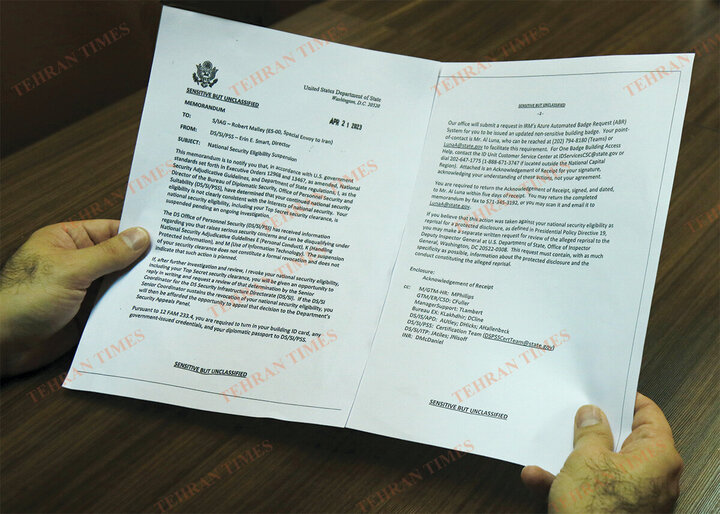 United States Department of State
Washington, D.C. 20520
SENSITIVE BUT UNCLASSIFIED
MEMORANDUM
APR 21 2023
TO: S/IAG – Robert Malley (ES-00, Special Envoy to Iran)
FROM: DS/SI/PSS – Erin E. Smart, Director
SUBJECT: National Security Eligibility Suspension
This memorandum is to notify you that, in accordance with U.S. government
standards set forth in Executive Orders 12968 and 13467, as amended, National
Security Adjudicative Guidelines, and Department of State regulations, I, as the
Director of the Bureau of Diplomatic Security, Office of Personnel Security and
Suitability (DS/SI/PSS), have determined that your continued national security
eligibility is not clearly consistent with the interests of national security. Your
national security eligibility, including your Top Secret security clearance, is
suspended pending an ongoing investigation.
The DS Office of Personnel Security (DS/SI/PSS) has received information
regarding you that raises serious security concerns and can be disqualifying under
National Security Adjudicative Guidelines E (Personal Conduct), K (Handling
Protected Information), and M (Use of Information Technology). This suspension
of your security clearance does not constitute a formal revocation and does not
indicate that such action is planned.
If, after further investigation and review, I revoke your national security eligibility,
including your Top Secret security clearance, you will be given an opportunity to
reply in writing and request a review of that determination by the Senior
Coordinator for the DS Security Infrastructure Directorate (DS/SI). If the DS/SI
Senior Coordinator sustains the revocation of your national security eligibility, you
will then be afforded the opportunity to appeal that decision to the Department's
Security Appeals Panel.
Pursuant to 12 FAM 233.4, you are required to turn in your building ID card, any
government-issued credentials, and your diplomatic passport to DS/SI/PSS.
SENSITIVE BUT UNCLASSIFIED
SENSITIVE BUT UNCLASSIFIED
-2-
Our office will submit a request in IRM's Azure Automated Badge Request (ABR)
System for you to be issued an updated non-sensitive building badge. Your point-
of-contact is Mr. Al Luna, who can be reached at (202) 794-8180 (Teams) or
LunaA4@state.gov to facilitate this requirement. For One Badge Building Access
Help, contact the ID Unit Customer Service Center at IDServicesCSC@state.gov or
dial 202-647-1773 (1-888-671-3747 if located outside the National Capital
Region). Attached is an Acknowledgement of Receipt for your signature,
acknowledging your understanding of these action, not your agreement.
You are required to return the Acknowledgement of Receipt, signed, and dated,
to Mr. Al Luna within five days of receipt. You may return the completed
memorandum by fax to 571-345-3192, or you may scan it and email it to
LunaA4@state.gov.
If you believe that this action was taken against your national security eligibility as
reprisal for a protected disclosure, as defined in Presidential Policy Directive 19,
you may make a separate written request for review of the alleged reprisal to the
Deputy Inspector General at U.S. Department of State, Office of Inspector
General, Washington, DC 20522-0308. This request must contain, with as much
specificity as possible, information about the protected disclosure and the
conduct constituting the alleged reprisal.
Enclosure:
Acknowledgement of Receipt
cc: M/GTM-HR: MPhillips
GTM/ER/CSD: CFuller
ManagerSupport: TLambert
Bureau EX: KLakhdhir; DCline
DS/IS/APD: AUtley; DHicks; AHallenbeck
DS/SI/PSS: Certification Team (DSPSSCertTeam@state.gov)
DS/SI/ITP: JAtiles; JWisoff
INR: DMcDaniel
SENSITIVE BUT UNCLASSIFIED
TEHRAN TIMES
TEHRAN TIMES
TEHRAN TIMES
TEHRAN TIMES
TEHRAN TIMES
TEHRAN TIMES
TEHRAN TIMES
TEHRAN TIMES
TEHRAN TIMES
TEHRAN TIMES
TEHRAN TIMES
TEHRAN TIMES